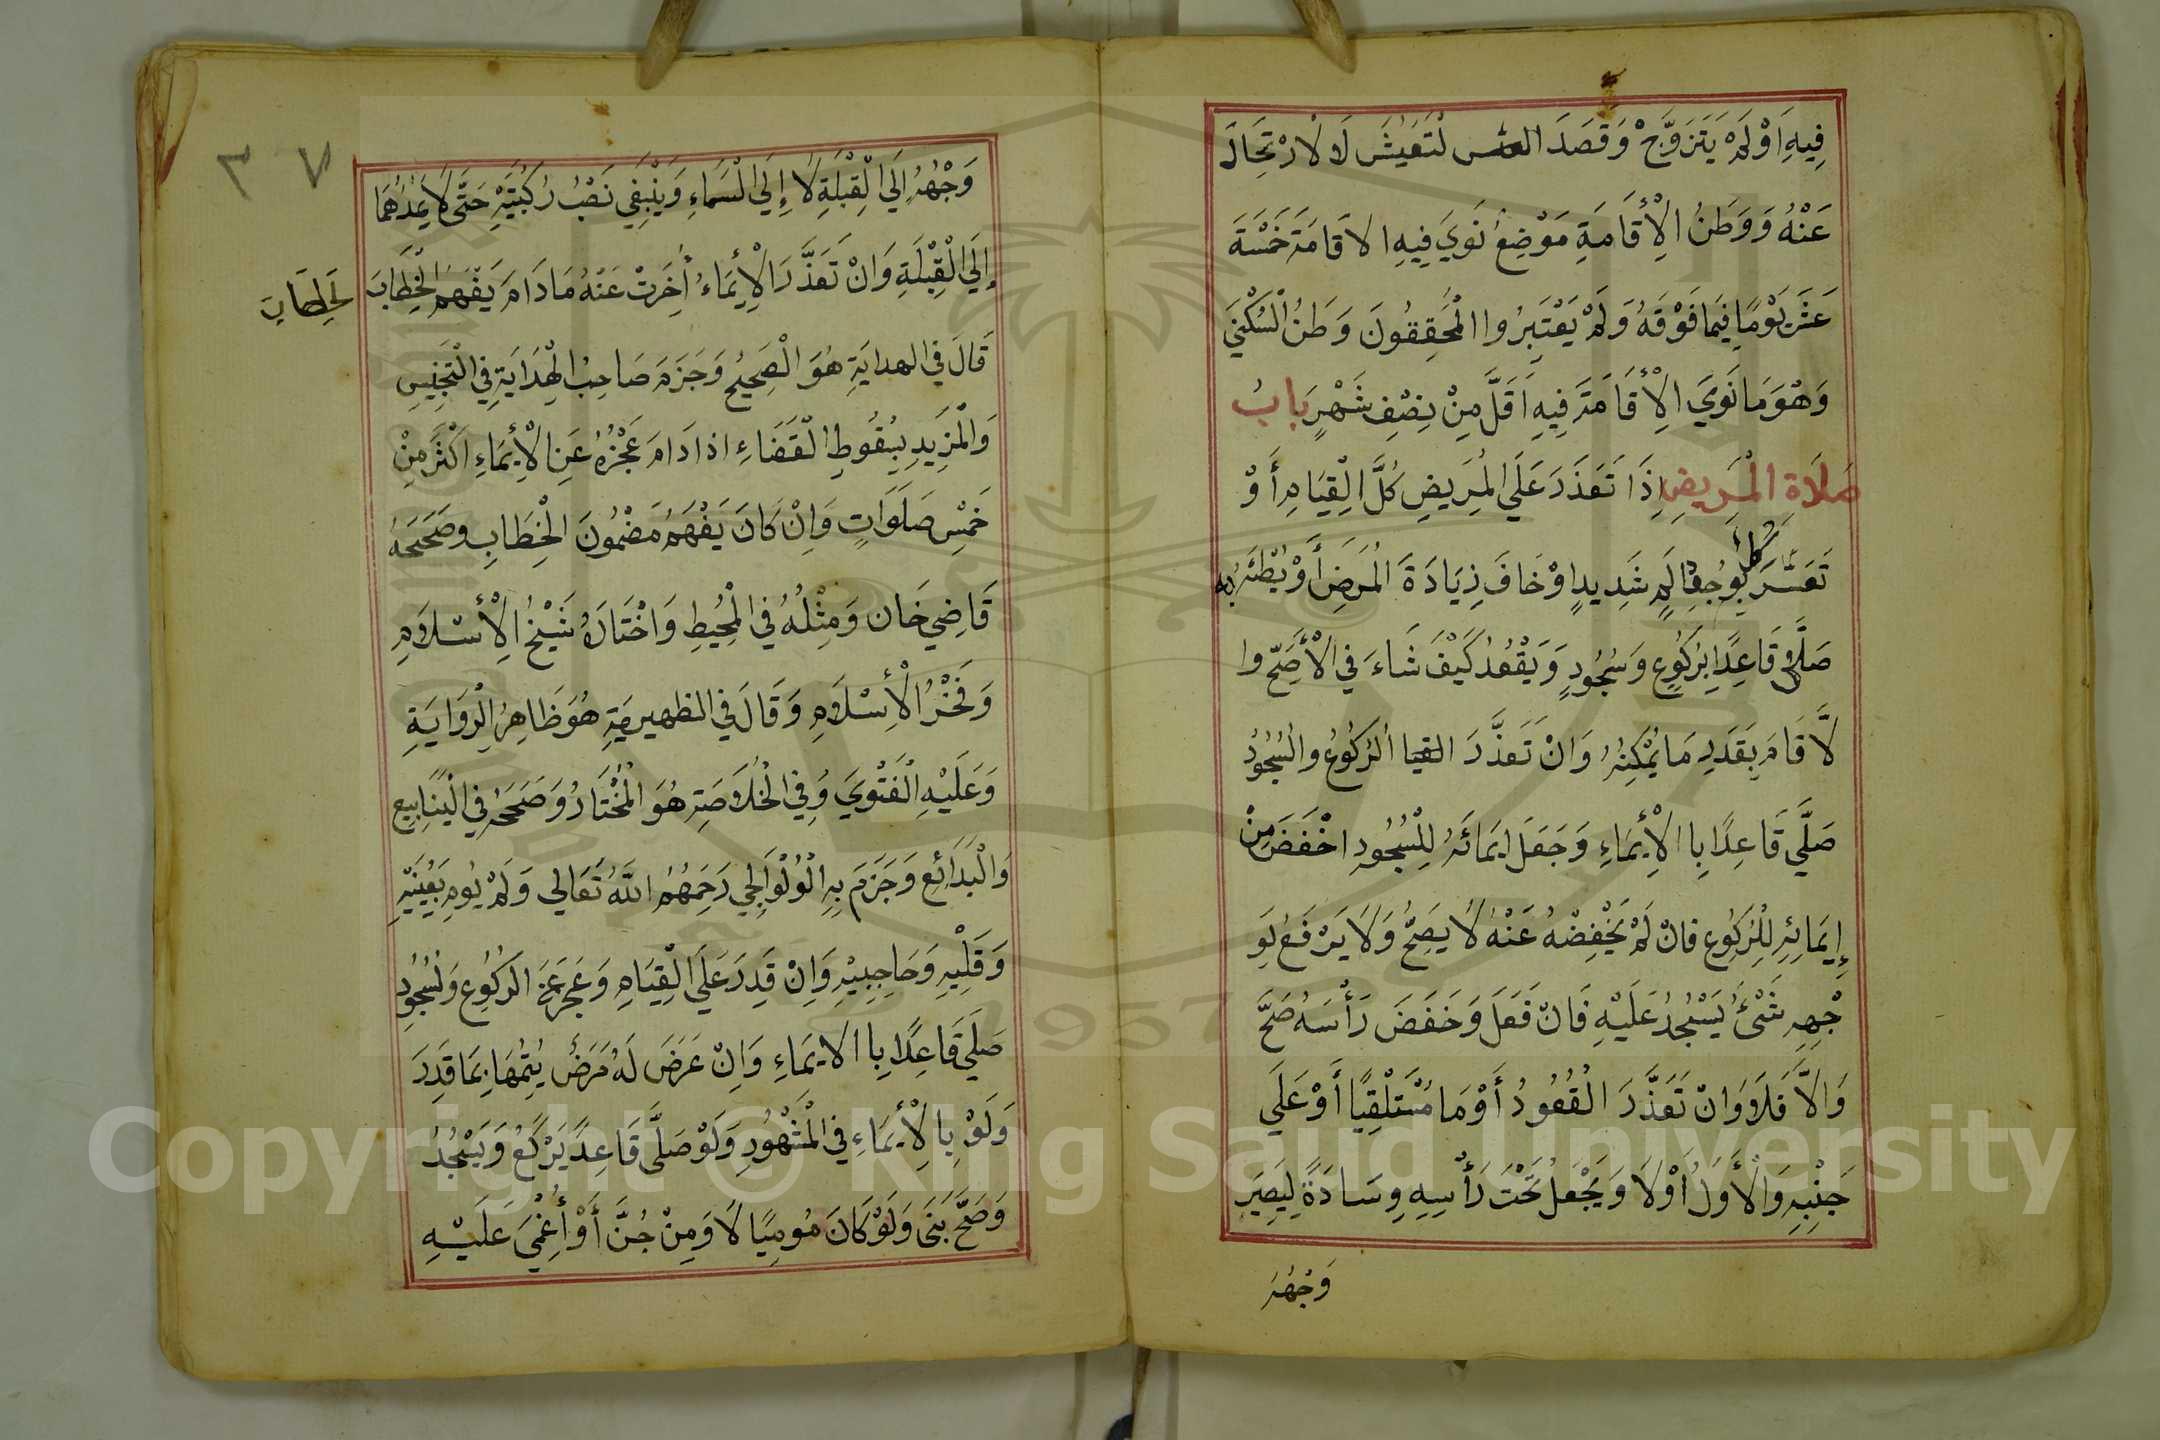 فِيهِ اَوْ لَمْ يَتَزَوَّجْ وَقَصَدَ التعيش لْتَعَيُشَ لَا لاِرْتِحَالَ
عَنْهُ وَوَطَنُ الْأِقَامَةِ مَوْضِعُ نَوَيَ فِيهِ الاقَامَةَ خَمْسَةَ
عَشَرَ يَوْمًا فِيمَا فَوْقَهُ وَلَمْ يَعْتَبِرُوا الْمُحَقِقُونَ وَطَنُ الْسُكْنَيَ
وَهُوَ مَا نَوَيَ الْأِقَامَةَ فِيهِ اَقَلَّ مِنْ نِصْفِ شَهْرٍ بابُ
صَلَاةِ الْمَرِيضِ اِذَا تَعَذَرَ عَلَي الْمَرِيضِ كُلَّ الْقِيَامِ أَوْ
تَعَسَّرَ كل لِوُجُودِ اَلَمٍ شَدِيدٍ اوْ خَافَ زِيَادَةَ الْمَرَضِ أَوْ بُطْئَهُ بِهِ
صَلَّى قَاعِدًا بِرُكُوعٍ وَسُجُودٍ وَيَقْعُدُ كَيْفَ شَاءَ فِي الْأَصَحّ وا
لَّا قَامَ بِقَدَرِ مَا يُمْكِنُهُ وَانْ تَعَذَّرَ القيا الرُكُوعُ والسُجُودُ
صَلَّي قَاعِدًا بِا الْأِيمَاءِ وَجَعَلَ ايمَائَهُ لِلْسُجُودِ اخْفَضَ مِنْ
إِيمَائِهِ لِلْرُكُوعِ فانْ لَمْ يَخْفِضْهُ عَنْهُ لَا يَصِحُّ وَلَا يَرْفَعُ لِوَ
جْهِهِ شَئٌ يَسْجُدُ عَلَيْهِ فَانْ فَعَلَ وَخَفَضَ رَأْسَهُ صَحَّ
وَالاَّ فَلَا وَانْ تَعَذَّرَ الْقُعُودُ أَوْمَا مُسْتَلْقِيًا أَوْ عَلَي
جَنْبِهِ وَالْأَوَلُ اَوْلَا وَيَجْعَلُ تَحْتَ رَأْسِهِ وِسَادَةً لِيَصِيرَ
وَجْهُهُ
٣٧
وَجْهُهُ اِلَي الْقِبْلَةِ لَا إِلَي الْسَمَاءِ وَيَنْبَغِي نَصْبُ رُكْبَتَيْهِ حَتَّي لَا يَمُدَّهُمَا
إِلَي الْقِبْلَةِ وَانْ تَعَذَّرَ الْأِيمَاءُ أُخِرَتْ عَنْهُ مَا دَامَ يَفْهَمُ الْخِطَابَ
لخِطَابَ
قَالَ فِي الهدايَةِ هُوَ الْصَحِيحُ وَجَزَمَ صَاحِبُ الْهِدَايَةِ فِي الْتَجْنِيسِ
وَالْمَزِيدِ بِسُقُوطِ الْقَضَاءِ اذا دَامَ عَجْزُهُ عَنِ الْأِيمَاءِ اكْثَرَ مِنْ
خَمْسِ صَلَوَاتٍ وَاِنْ كَانَ يَفْهَمُ مَضْمُونَ الْخِطَابِ وصَحَحَهُ
قَاضِي خَان وَمِثْلُهُ فِي الْمُحِيطِ وَاخْتَارَهُ شَيْخُ الْأِسْلَامِ
وَفَخْرُ الْأِسْلَامِ وَقَالَ فِي الظهيريَةِ هُوَ ظَاهِرُ الْرِوَايَةِ
وَعَلَيْهِ الْفَتْوَيَ وَفِي الْخُلَاصَةِ هُوَ الْمُخْتَارُ وَصَحَحَهُ فِي الْيَنَابِيعِ
وَالْبَدَائِعِ وَجَزَمَ بِهِ الْوَلْوَالِجِي رَحِمَهُمُ اللهُ تَعَالي وَلَمْ يُومِ بِعَيْنَيْهِ
وَقَلْبِهِ وَحَاجِبَيْهِ وَاِنْ قَدِرَ عَلَي الْقِيَامِ وَعَجَزَ عَنِ الرُكُوعِ وَلْسُجُودِ
صَلَي قَاعِدًا بِا الايمَاءِ وَاِنْ عَرَضَ لَهُ مَرَضٌ يُتِمُّهَا بِمَا قَدِرَ
وَلَوْ بِا لْأِيمَاءِ فِي الْمَشْهُورِ وَلَوْ صَلَّى قَاعِدًا يَرْكَعُ وَيَسْجُدُ
وَصَحَّ بَنَى وَلَوْ كَانَ مُومِيًا لَا وَمِنْ جُنَّ أَوْ أُغْمِيَ عَلَيْهِ
Copyright © King Saud University
1957